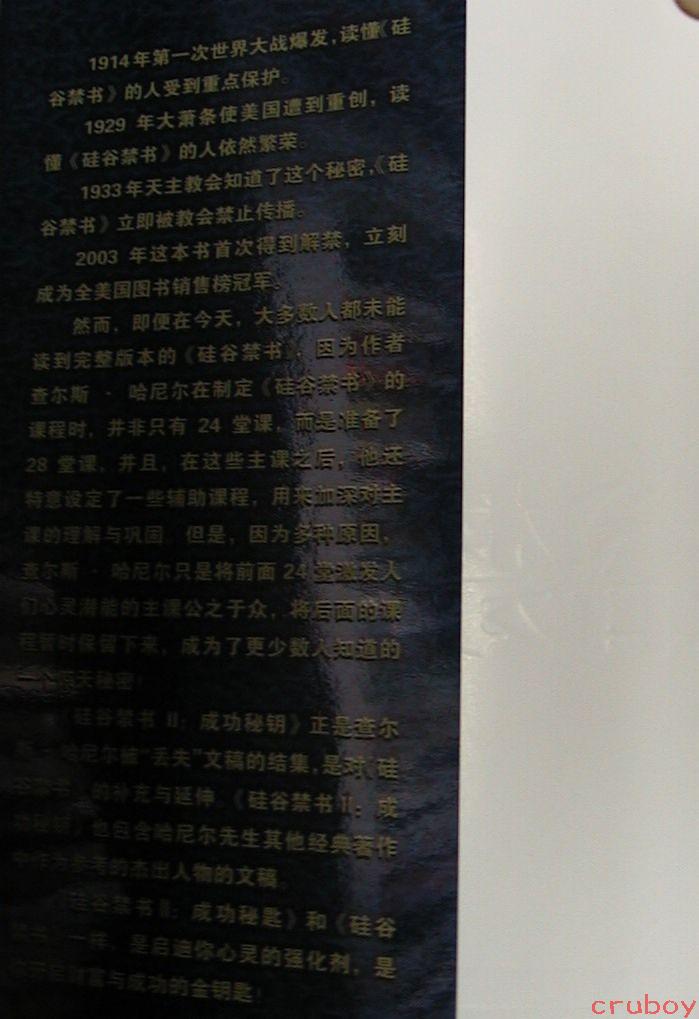 1914年第一次世界大战爆发,读懂《硅
谷禁书》的人受到重点保护。
1929 年大萧条使美国遭到重创，读
懂《硅谷禁书》的人依然繁荣。
1933年天主教会知道了这个秘密,《硅
谷禁书》立即被教会禁止传播。
2003 年这本书首次得到解禁，立刻
成为全美国图书销售榜冠军。
然而，即便在今天，大多数人都未能
读到完整版本的《硅谷禁书》，因为作者
查尔斯 · 哈尼尔在制定《硅谷禁书》的
课程时，并非只有 24 堂课，而是准备了
28 堂课，并且，在这些主课之后，他还
特意设定了一些辅助课程，用来加深对主
课的理解与巩固。但是，因为多种原因，
查尔斯 · 哈尼尔只是将前面 24 堂激发人
们心灵潜能的主课公之于众，将后面的课
程暂时保留下来，成为了更少数人知道的
一个 天秘密！
《硅谷禁书 II：成功秘钥》正是查尔
斯 · 哈尼尔被“丢失”文稿的结集,是对《硅
谷禁书》的补充与延伸。《硅谷禁书 II：成
功秘钥》也包含哈尼尔先生其他经典著作
中作为参考的杰出人物的文稿。
《硅谷禁书 II：成功秘匙》和《硅谷
禁书》一样，是启迪你心灵的强化剂，是
财富与成功的金钥匙！
cruboy